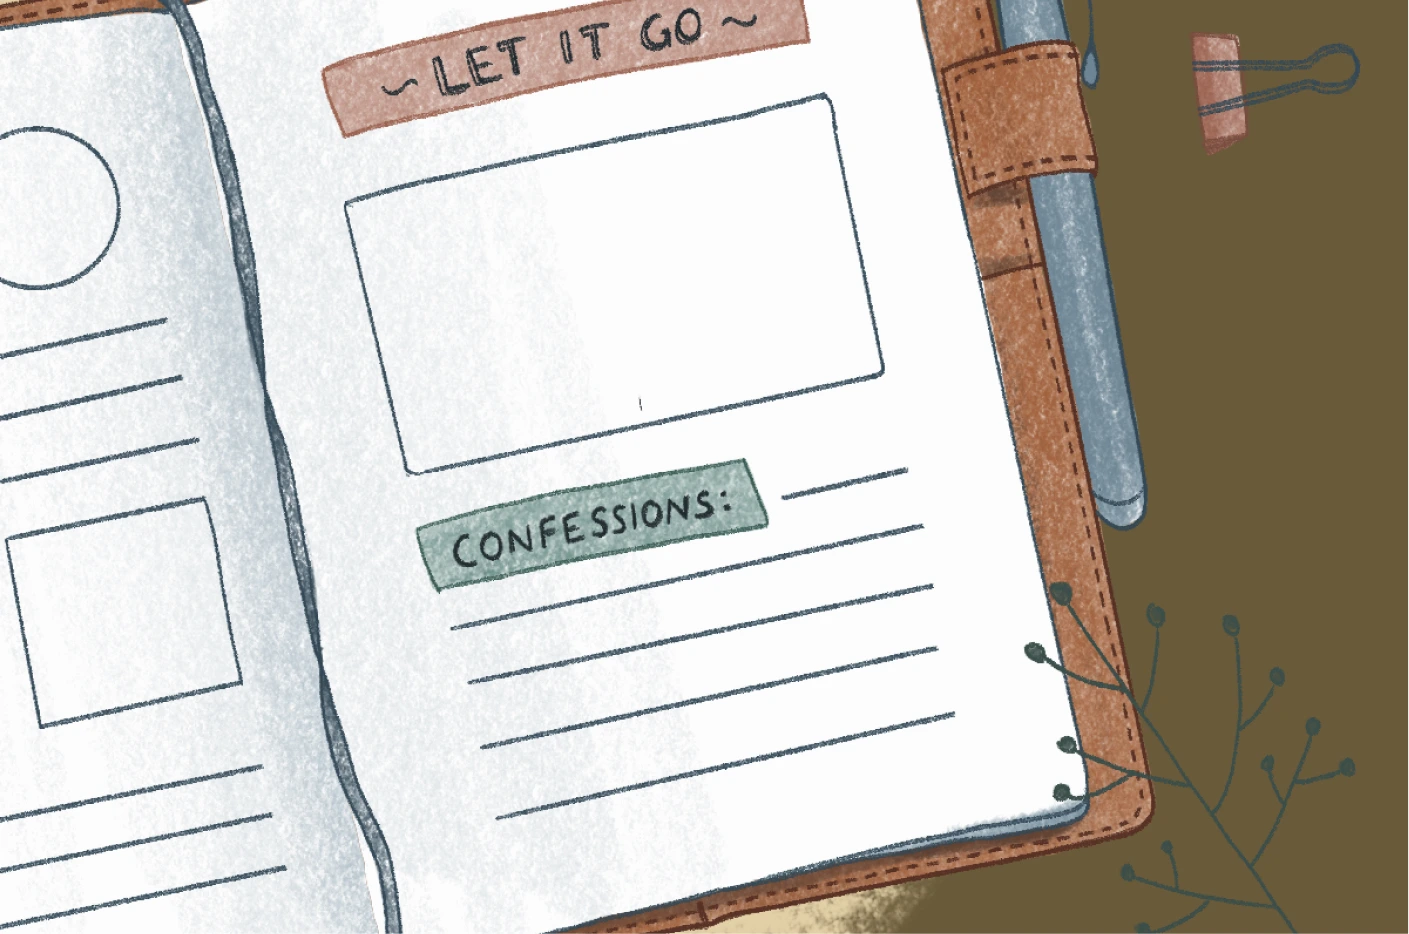 ~ LET IT GO ~
CONFESSIONS: